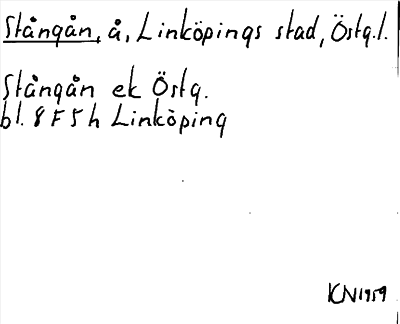 Stångån, å, Linköpings stad, Östg.l.
Stångån ek Östg.
bl. 8 F 5 h Linköping
KCN 1959